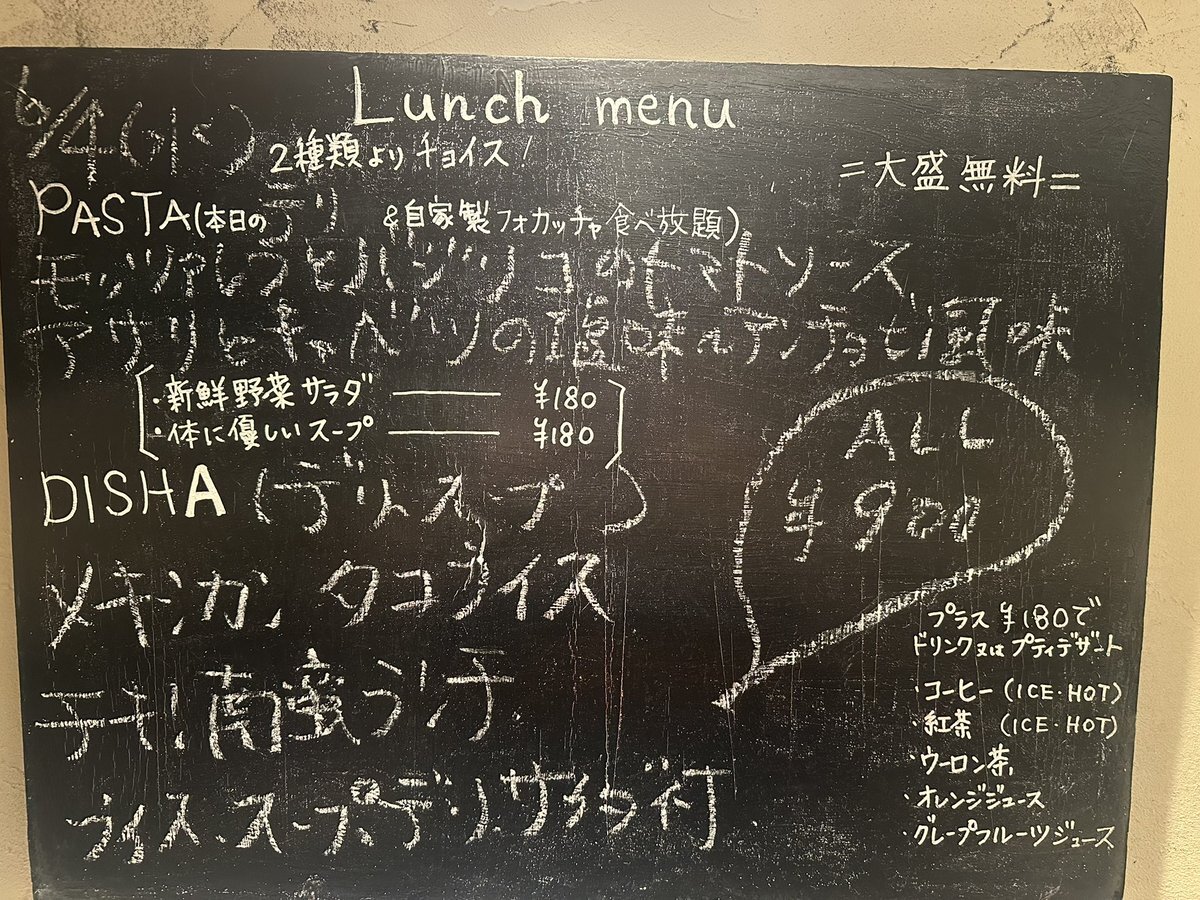 Lunch menu
6/4(水)
2種類よりチョイス!
=大盛無料=
PASTA(本日のデリ &自家製フォカッチャ食べ放題)
モッツァレラとバジリコのトマトソース
アサリとキャベツの塩味 アンチョビ風味
・新鮮野菜サラダ ¥180
・体に優しいスープ ¥180
ALL
¥900
DISHA (デリ、スープ)
メキシカン タコライス
チキン南蛮
ライス、スープ、デリ、サラダ付
プラス¥180で
ドリンク又はプティデザート
・コーヒー(ICE・HOT)
・紅茶 (ICE・HOT)
・ウーロン茶
・オレンジジュース
・グレープフルーツジュース